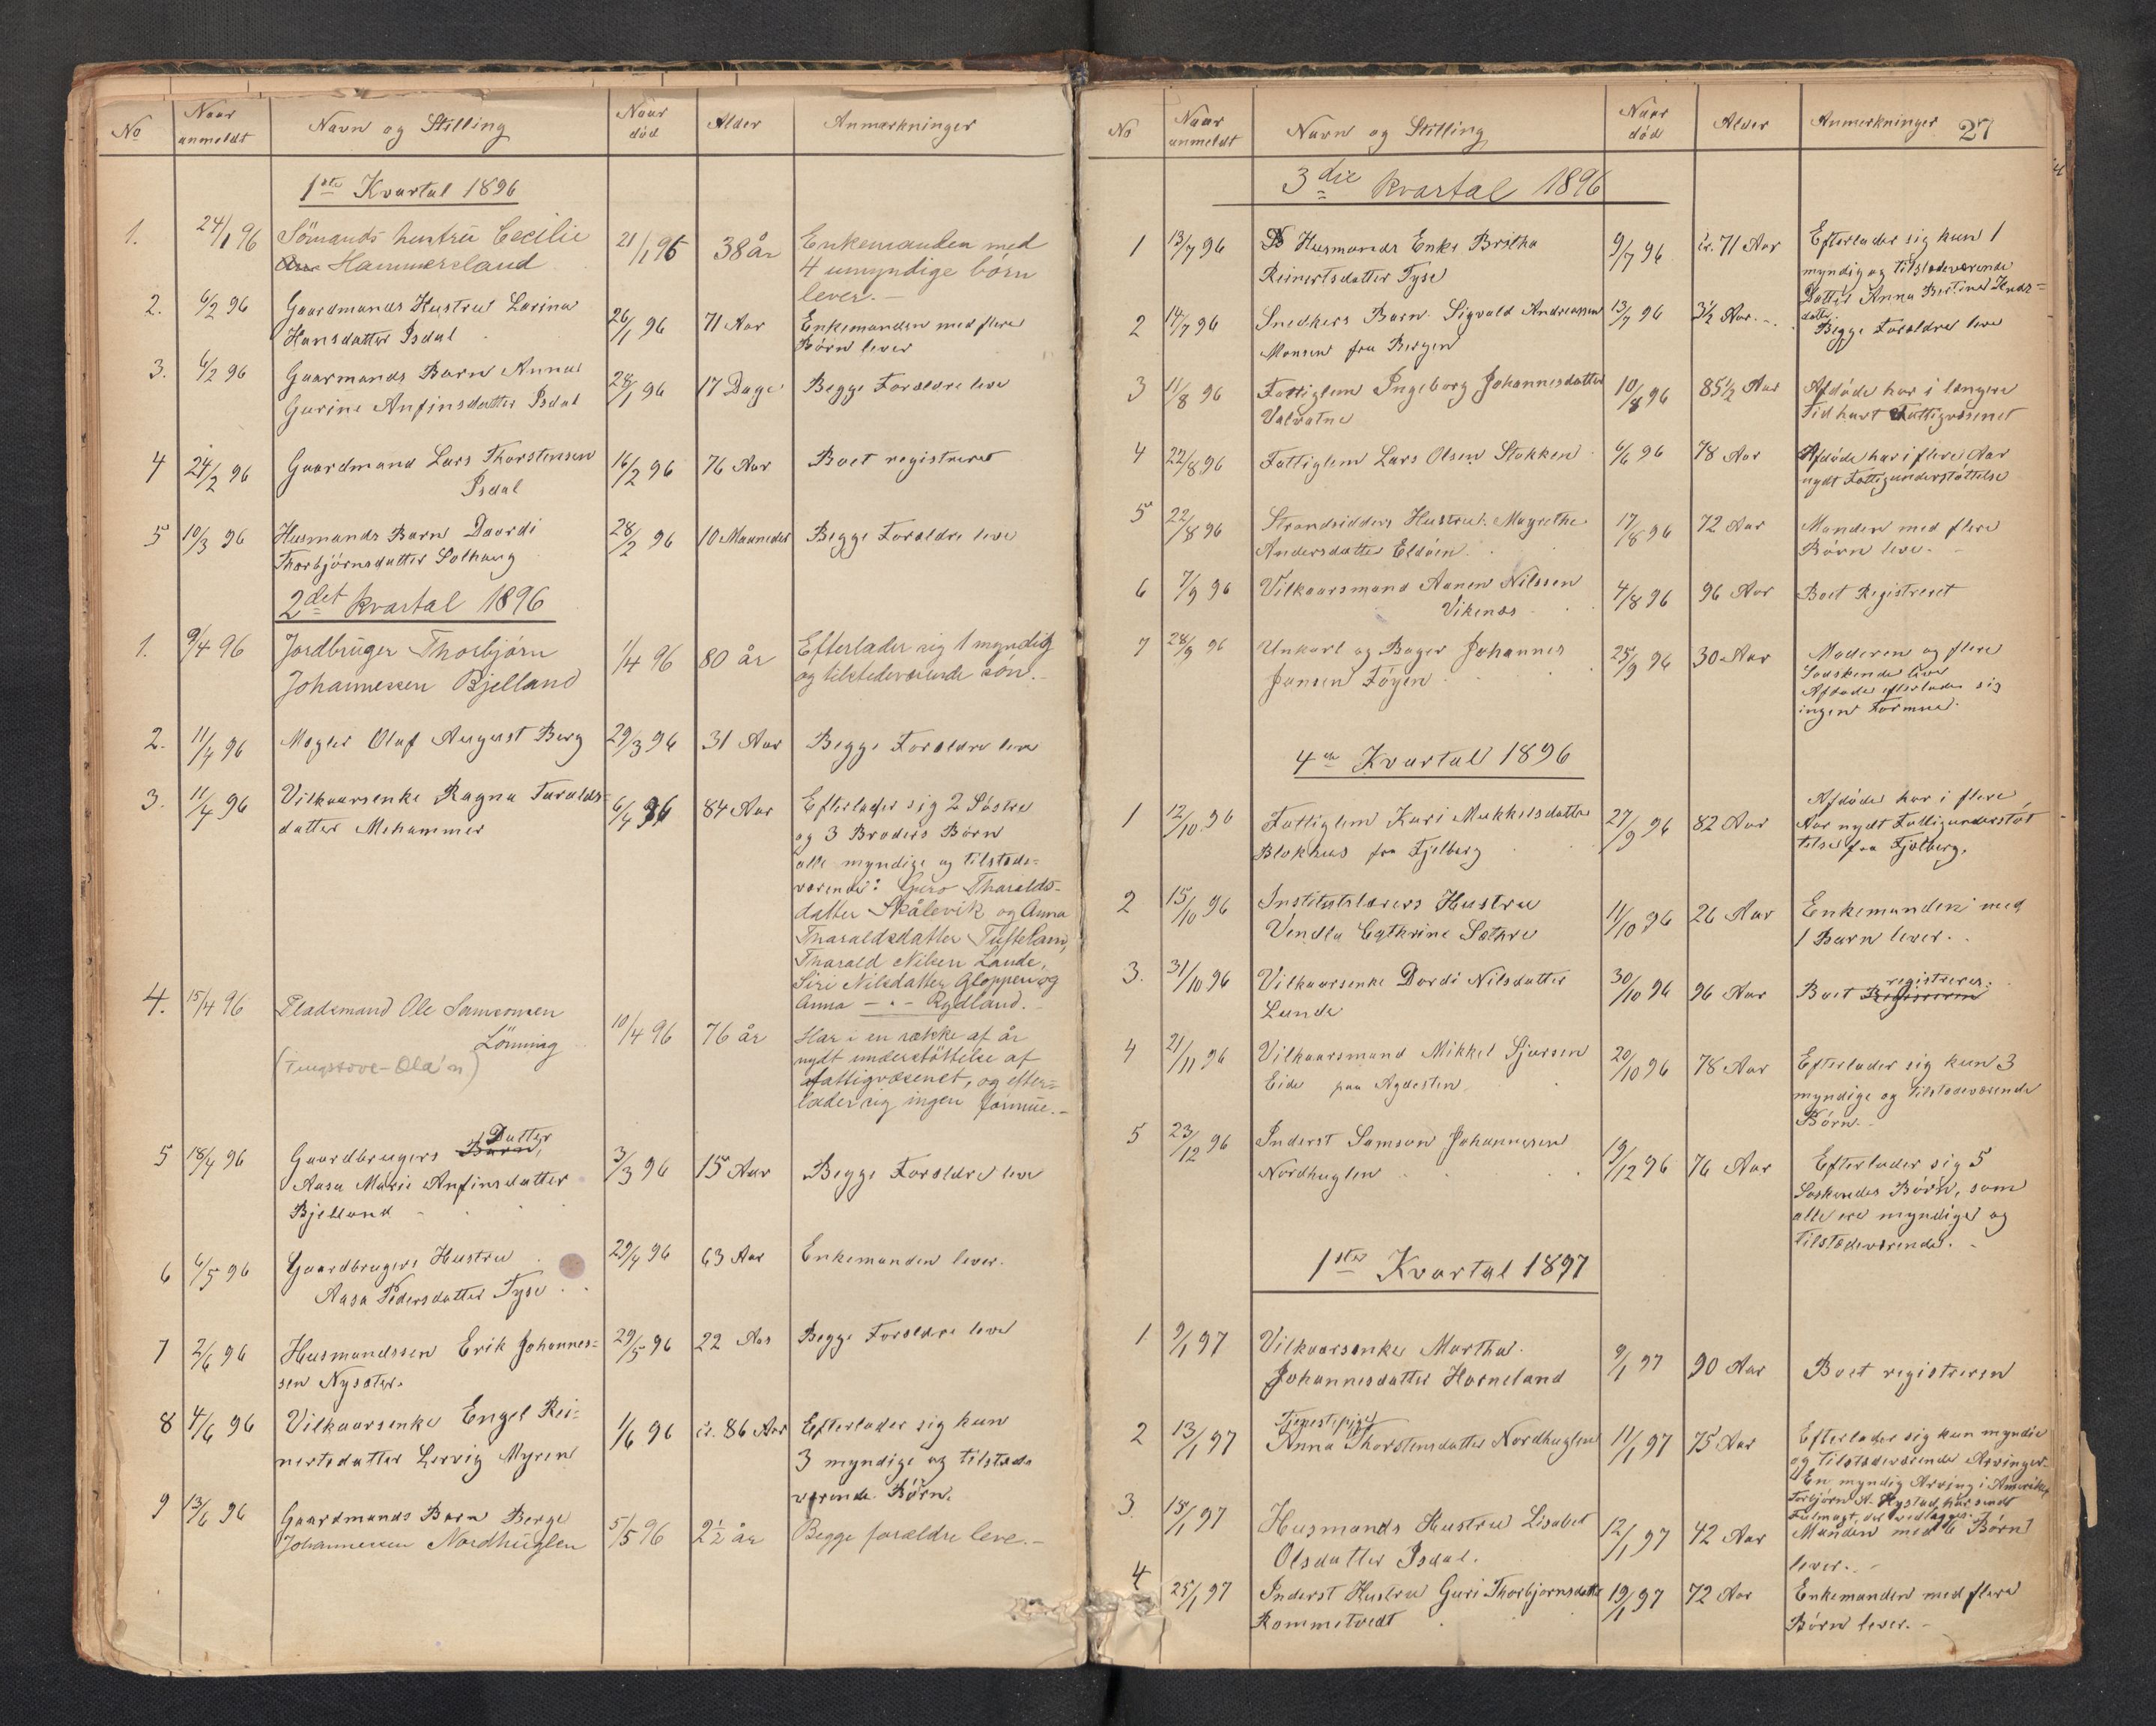 No Naar anmeldt Navn og Stilling Naar död Alder Anmærkninger
1ste Kvartal 1896
1. 24/1 96 Sömands hustru Cecilie 21/1 96 38 år Enkemanden med
Hammersland 4 umyndige börn
lever. –
2. 6/2 96 Gaardmands Hustru Larina 26/1 96 71 Aar Enkemanden med flere
Hansdatter Isdal Börn lever
3. 6/2 96 Gaarmands Barn Anna 28/1 96 17 Dage Begge Forældre leve
Gurine Anfinsdatter Isdal
4 24/2 96 Gaardmand Lars Thorstensen 16/2 96 76 Aar Boet registreret
Isdal
5 10/3 96 Husmands Barn Daardi 28/2 96 10 Maaneder Begge Forældre leve
Thorbjörnsdatter Solhaug
2det kvartal 1896
1. 9/4 96 Jordbruger Thorbjörn 1/4 96 80 år Efterlader sig 1 myndig
Johannessen Bjelland og tilstedeværende sön. –
2. 11/4 96 Mægler Oluf August Berg 29/3 96 31 Aar Begge Forældre leve
3. 11/4 96 Vilkaarsenke Ragna Taralds- 6/4 96 84 Aar Efterlader sig 2 Söstre
datter Mehammer og 3 Broders Börn
alle myndige og tilstede-
værende: Guro Tharalds-
datter Skålevik og Anna
Tharaldsdatter Tufteland,
Tharald Nilsen Lande,
Siri Nilsdatter Gloppen og
Anna – " – Rydland. –
4. 15/4 96 Pladsmand Ole Samsonsen 10/4 96 76 år Har i en række af år
Lönning nydt understöttelse af
(Tengstove-Ola'n) fattigvæsenet, og efter-
lader sig ingen formue. –
5 18/4 96 Gaardbrugers Barn, Datter 3/3 96 15 Aar Begge Forældre leve
Aasa Marie Anfinsdatter
Bjelland
6 6/5 96 Gaardbrugers Hustru 29/4 96 63 Aar Enkemanden lever.
Aasa Pedersdatter Tyse
7 2/6 96 Husmandssøn Erik Johannes- 29/5 96 22 Aar Begge Forældre leve
sen Nysæter.
8 4/6 96 Vilkaarsenke Engel Rei- 1/6 96 ir. 86 Aar Efterlader sig kun
nertsdatter Lervig Myren 3 myndige og tilstede
værende Börn.
9 13/6 96 Gaardmands Barn Berge 5/5 96 2½ år Begge forældre leve. –
Johannessen Nordhuglen
27
No Naar anmeldt Navn og Stilling Naar död Alder Anmerkninger
3die kvartal 1896
1 13/7 96 Husmands Enke Britha 9/7 96 ir. 71 Aar Efterlader sig kun 1
Reinertsdatter Tyse myndig og tilstedeværende
Datter Anna Bertine Knuds-
datter
2 14/7 96 Snedkers Barn Sigvald Andreassen 13/7 96 3½ Aar. Begge Forældre leve
Monsen fra Bergen
3 11/8 96 Fattiglem Ingeborg Johannesdatter 10/8 96 85½ Aar Afdöde har i længere
Valvatne Tid havt Fattigvæsenet
4 22/8 96 Fattiglem Lars Olsen Stokken 6/6 96 78 Aar Afdöde har i flere Aar
nydt Fattigunderstöttelse
5 22/8 96 Strandsidders Hustru Magrethe 17/8 96 72 Aar Manden med flere
Andersdatter Eldöen Börn leve.
6 7/9 96 Vilkaarsmand Aanen Nilssen 4/8 96 96 Aar Boet Registreret
Vikenes
7 28/9 96 Unkarl og Bager Johannes 25/9 96 30 Aar Moderen og flere
Jansen Föyen Södskende leve
Afdöde efterlader sig
ingen Formue.
4de Kvartal 1896
1 12/10 96 Fattiglem Kari Mikkelsdatter 27/9 96 82 Aar Afdöde har i flere
Blokhus fra Fjelberg Aar nydt Fattigunderstöt
telse fra Fjelberg.
2 15/10 96 Institutslærers Hustru 11/10 96 26 Aar Enkemanden med
Vendla Cathrine Sæthre 1 Barn lever.
3. 31/10 96 Vilkaarsenke Dordi Nilsdatter 30/10 96 96 Aar Boet registreres.
Lunde
4 21/11 96 Vilkaarsmand Mikkel Sjursen 20/10 96 78 Aar Efterlader sig kun 3
Eide paa Agdesten myndige og tilstedeværende
Börn.
5 23/12 96 Inderst Samson Johannesen 19/12 96 76 Aar Efterlader sig 5
Nordhuglen Söskendes Börn, som
alle ere myndige og
tilstedeværende. –
1ste Kvartal 1897
1 9/1 97 Vilkaarsenke Martha 9/1 97 90 Aar Boet registreren
Johannesdatter Horneland
2 13/1 97 Tjenestepige 11/1 97 75 Aar Efterlader sig kun myndie
Anna Thorstensdatter Nordhuglen og tilstedeværende Arvinger
En myndig Arving i Amerika
Torbjörn A. Nystad har sendt
Fulmagt, der vedlægges.
3. 15/1 97 Husmands Hustru Lisabet 12/1 97 42 Aar Manden med 6 Börn
Olsdatter Isdal. lever. –
4 25/1 97 Inderst Hustru Guri Thorbjornsdatter 19/1 97 72 Aar Enkemanden med flere
Rommetvedt Börn lever. –